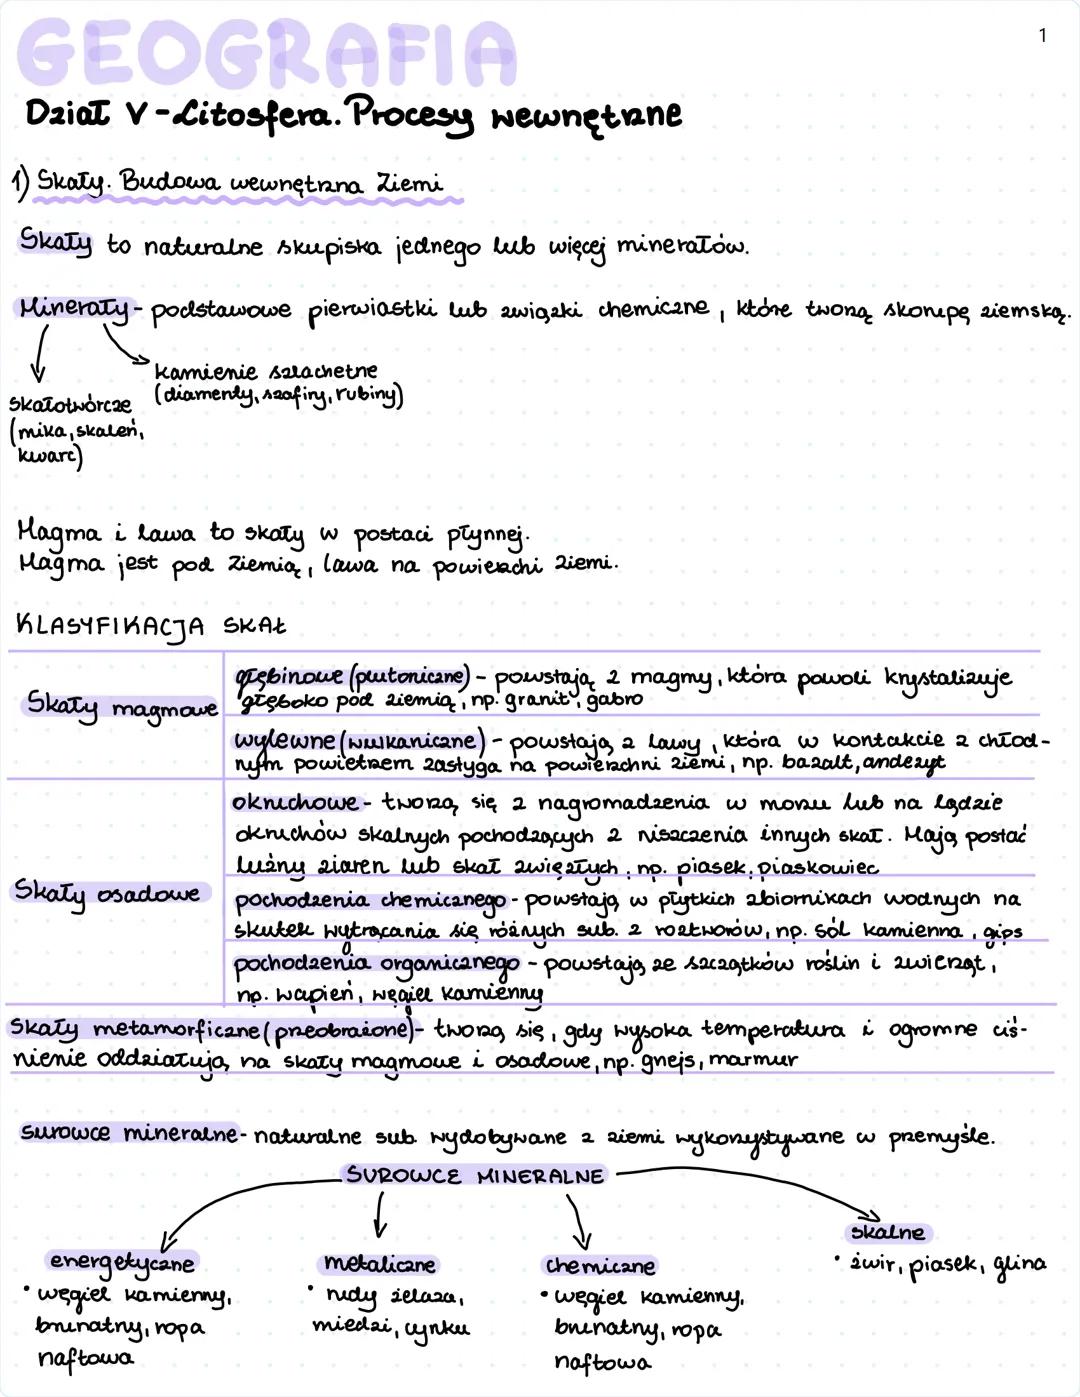 GEOGRAFIA
1
Dział V - Litosfera. Procesy wewnętrzne
1) Skały. Budowa wewnętrzna Ziemi
Skały to naturalne skupiska jednego lub więcej minerałów.
Minerały - podstawowe pierwiastki lub związki chemiczne, które tworzą skorupę ziemską.
kamienie szlachetne
(diamenty, szafiry, rubiny)
skałotwórcze
(mika, skaleń,
kwarc)
Magma i lawa to skały w postaci płynnej.
Magma jest pod Ziemią, lawa na powierzchi Ziemi.
KLASYFIKACJA SKAŁ
Skały magmowe
głębinowe (plutoniczne) - powstają z magmy, która powoli krystalizuje
głęboko pod ziemią, np. granit, gabro
wylewne (wulkaniczne) - powstają z lawy, która w kontakcie z chłod-
nym powietrzem zastyga na powierzchni ziemi, np. bazalt, andezyt
Skały osadowe
okruchowe - tworzą się z nagromadzenia w morzu lub na lądzie
okruchów skalnych pochodzących z niszczenia innych skał. Mają postać
luźny ziaren lub skał zwięzłych, np. piasek, piaskowiec
pochodzenia chemicznego - powstają w płytkich zbiornikach wodnych na
skutek wytrącania się różnych sub. z roztworów, np. sól kamienna, gips
pochodzenia organicznego - powstają ze szczątków roślin i zwierząt,
np. wapień, węgiel kamienny
Skały metamorficzne (przeobrażone) - tworzą się, gdy wysoka temperatura i ogromne ciś-
nienie oddziałują na skały magmowe i osadowe, np. gnejs, marmur
Surowce mineralne - naturalne sub. wydobywane z ziemi wykorzystywane w przemyśle.
SUROWCE MINERALNE
energetyczne
• węgiel kamienny,
brunatny, ropa
naftowa
metaliczne
• rudy żelaza,
miedzi, cynku
chemiczne
• węgiel kamienny,
brunatny, ropa
naftowa
skalne
• żwir, piasek, glina